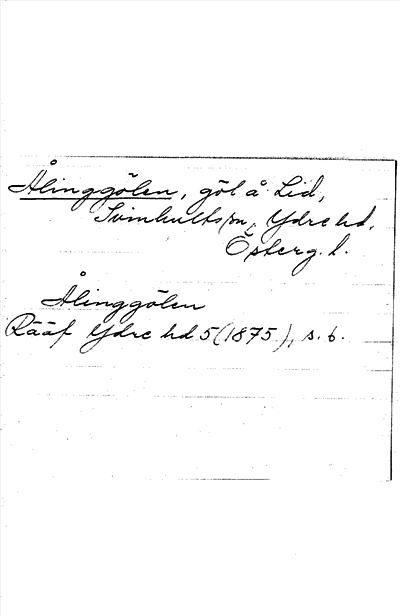 Ålinggölen, göl å Lid,
Svinhults sn, Ydre hd,
Österg. l.
Ålinggölen
Rääf Ydre hd 5 (1875), s. 6.